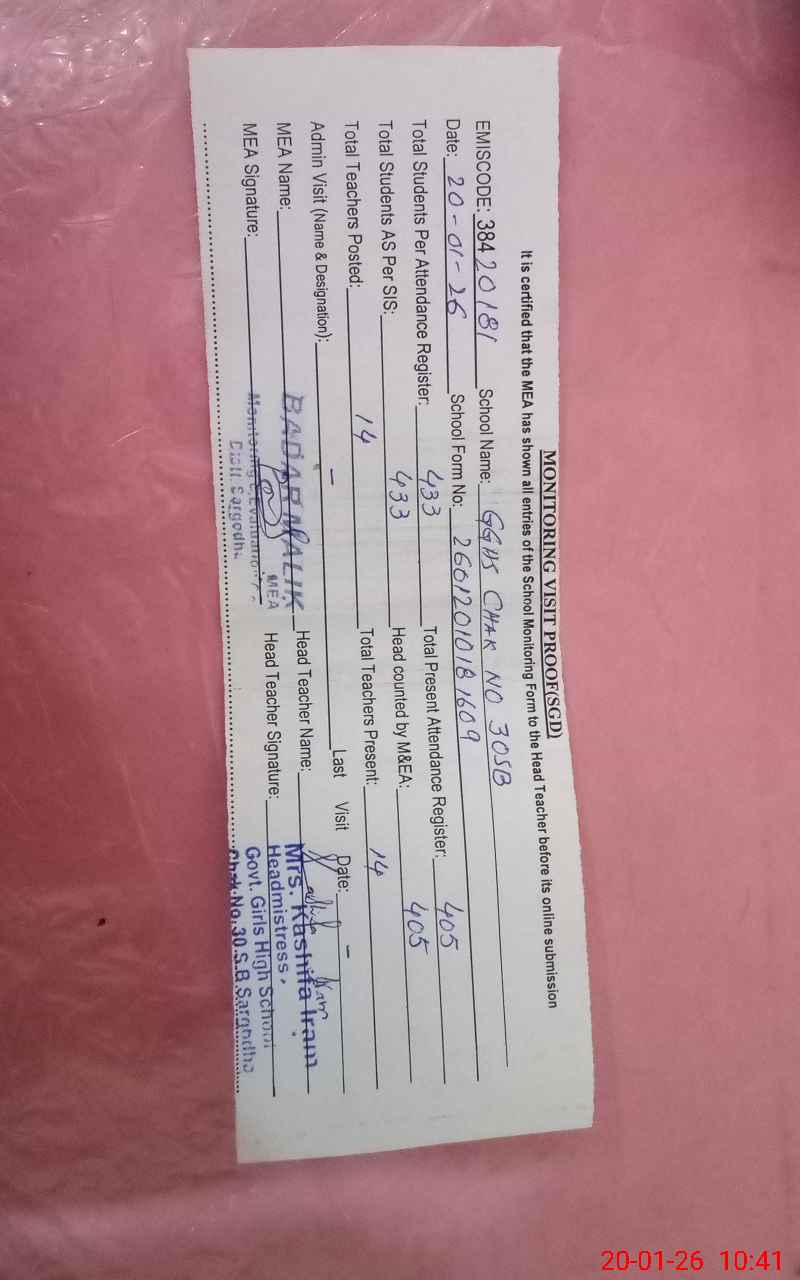 MONITORING VISIT PROOF(SGD)
It is certified that the MEA has shown all entries of the School Monitoring Form to the Head Teacher before its online submission
EMISCODE: 38420181 School Name: GGHS CHAK NO 30SB
Date: 20-01-26 School Form No: 2601201018 1609
Total Students Per Attendance Register: 433 Total Present Attendance Register: 405
Total Students AS Per SIS: 433 Head counted by M&EA: 405
Total Teachers Posted: 14 Total Teachers Present: 14
Admin Visit (Name & Designation): - Last Visit Date: -
MEA Name: BADAR MALIK Head Teacher Name: Mrs. Kashifa Iram
MEA
MEA Signature: Head Teacher Signature: Headmistress,
Monitoring & Evaluation
Govt. Girls High School
Distt. Sargodha
Chak.No.30.S.B.Sargodha
20-01-26 10:41